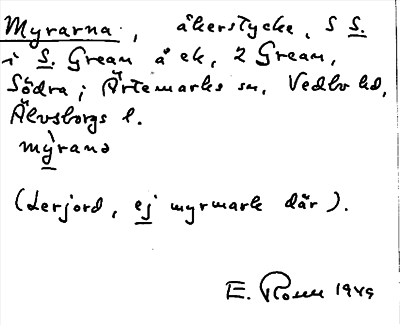 Myrarna, åkerstycke, S S.
i S. Gream å ek, 2 Gream,
Södra; Ärtemarks sn, Vedbo hd,
Älvsborgs l.
mỳranə
(Lerjord, ej myrmark där).
E. 1949